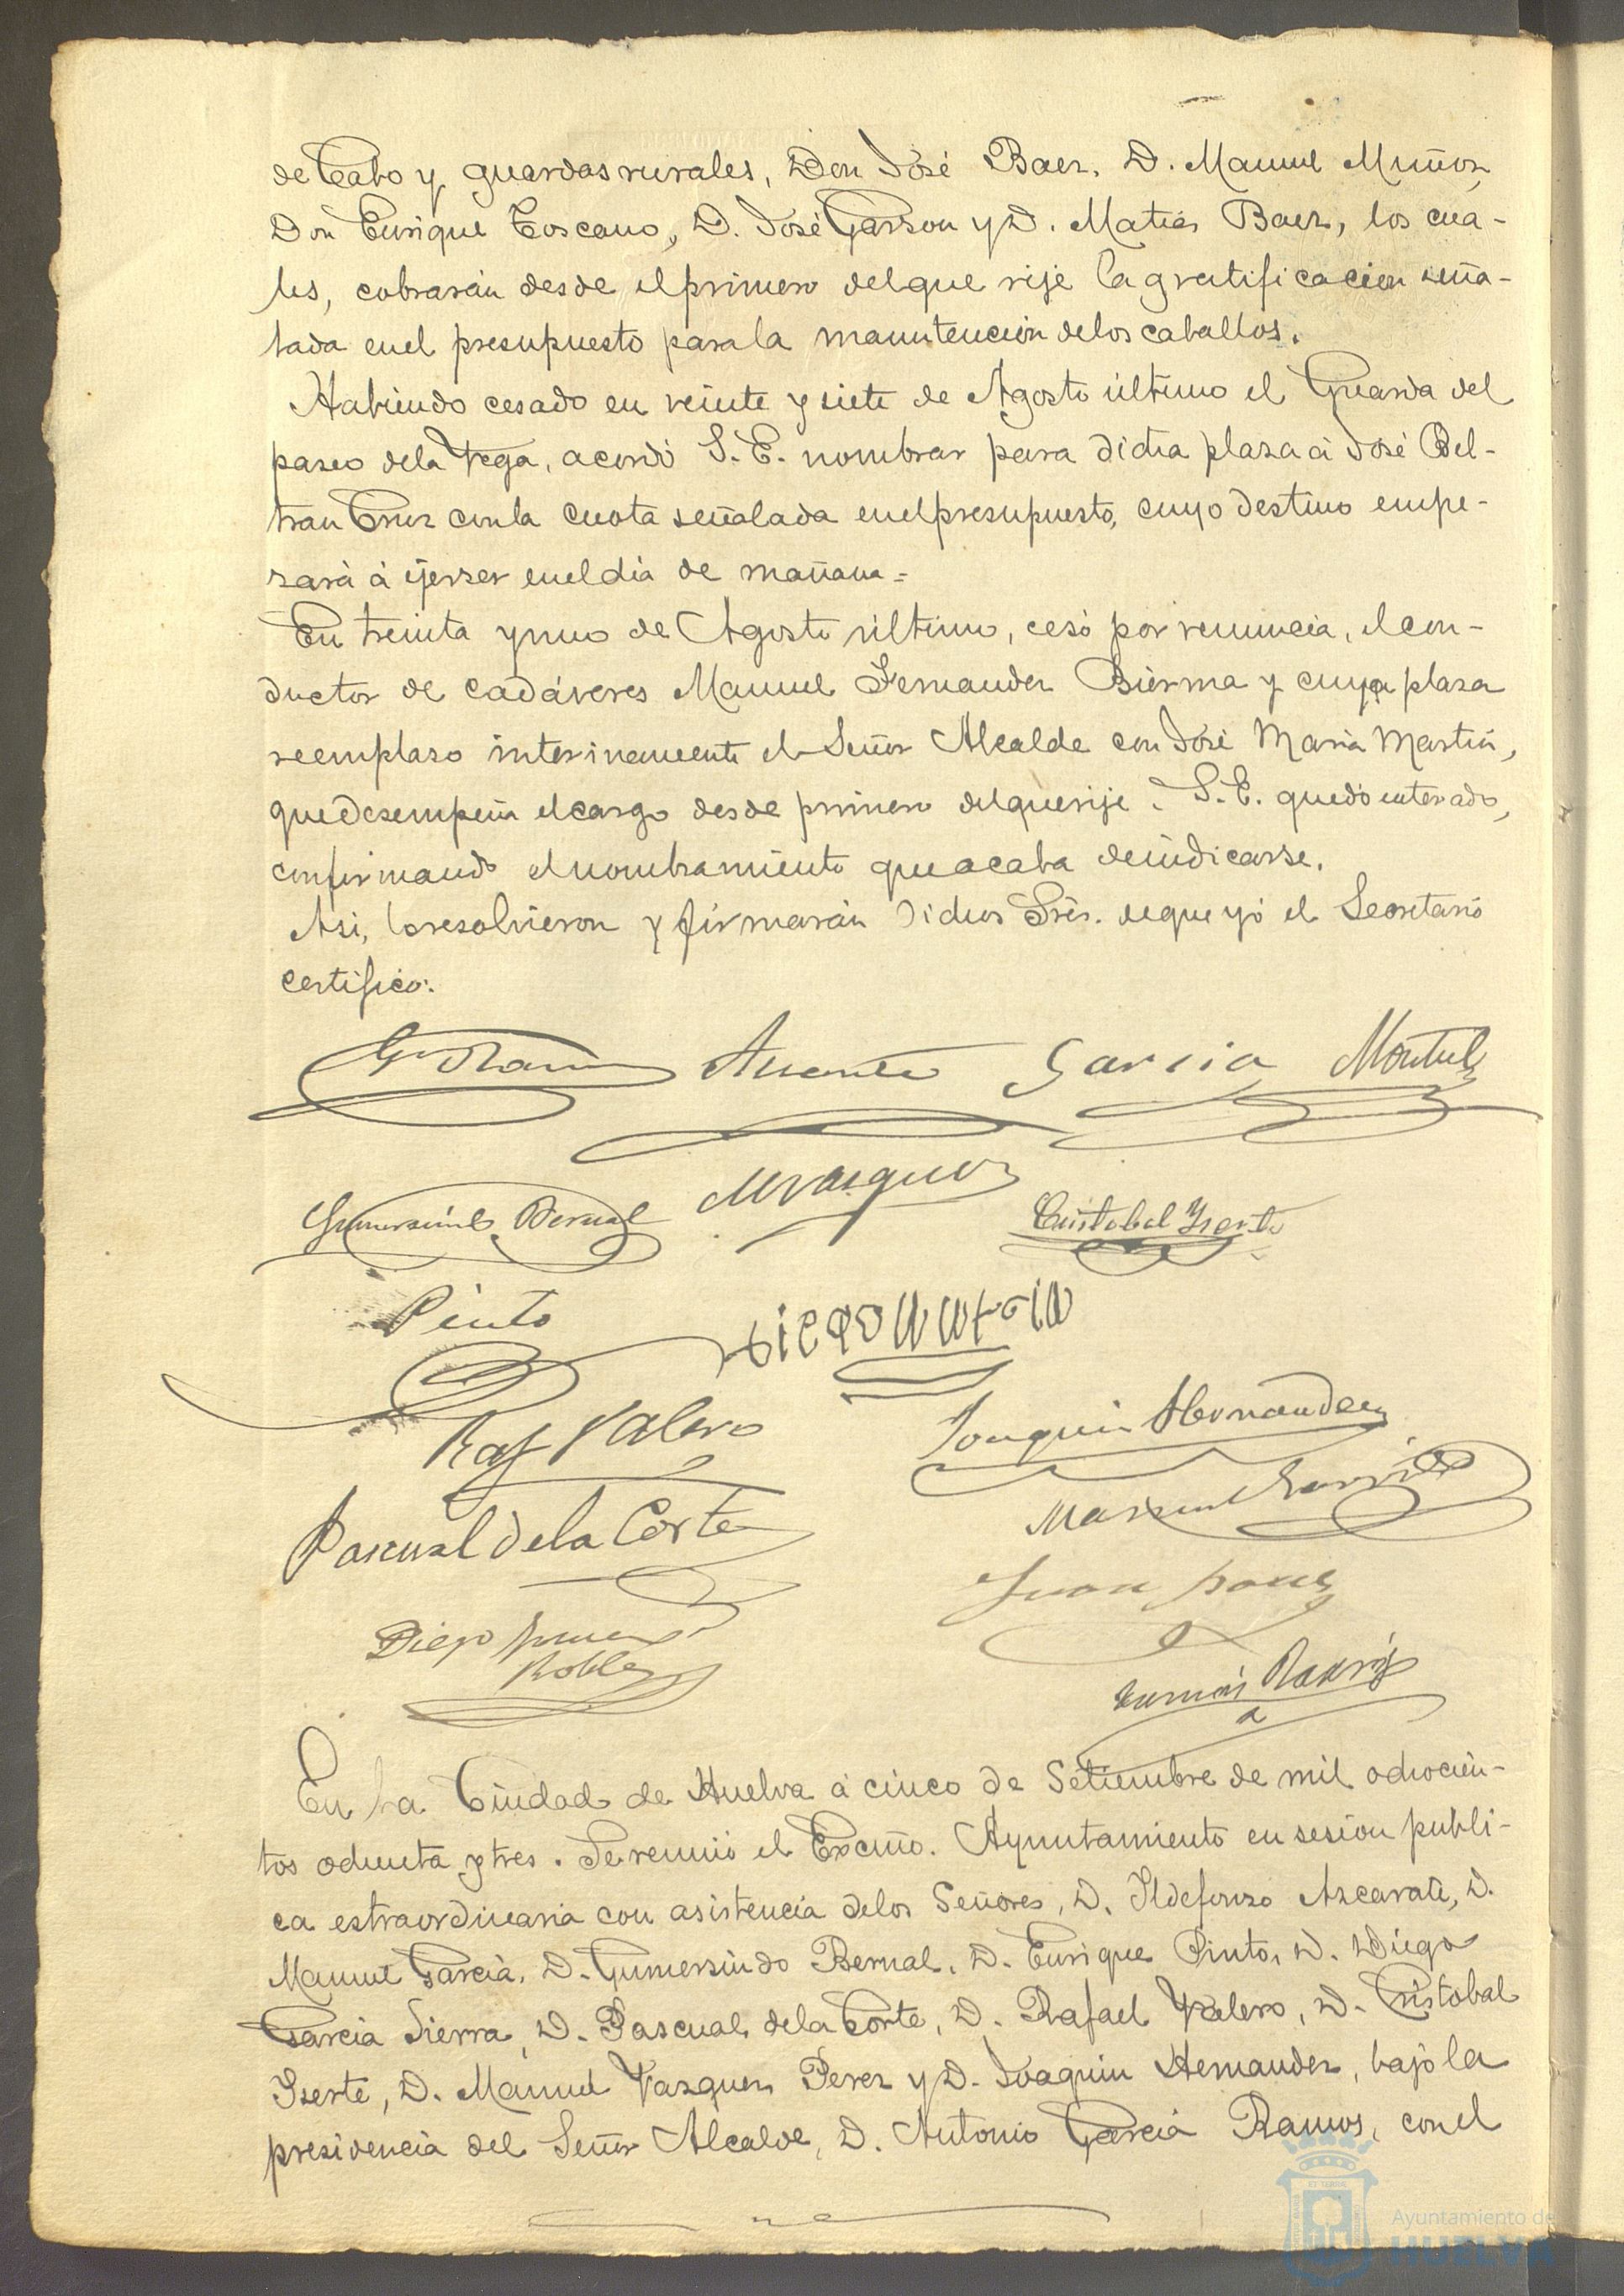 de Cabo y guardas rurales, Don José Baez, D. Manuel Muñoz,
Don Enrique Toscano, D. José Garzon y D. Matias Baez, los cua-
les, cobrarán desde el primero del que rije la gratificacion seña-
lada en el presupuesto para la manutencion de los caballos.
Habiendo cesado en veinte y siete de Agosto último el Guarda del
paseo de la Vega, acordó S. E. nombrar para dicha plaza á José Bel-
tran Cruz con la cuota señalada en el presupuesto, cuyo destino empe-
zará á ejerzer en el dia de mañana=
En treinta y uno de Agosto último, cesó por renuncia, el con-
ductor de cadáveres Manuel Fernandez Bierma y cuya plaza
reemplazo interinamente el Señor Alcalde con José Maria Martin,
que desempeña el cargo desde primero del que rije. S. E. quedó enterado,
confirmando el nombramiento que acaba de indicarse.
Asi, lo resolvieron y firmarán dichos Sres. de que yó el Secretario
certifico:
Garcia
Gumersindo Bernal M Vazquez Cristobal Yserte
Pinto
Raf Valero Joaquin Hernandez
Pascual de la Corte Manuel
Diego Robles Juan
En la Ciudad de Huelva á cinco de Setiembre de mil ochocien-
tos ochenta y tres. Se reunió el Excmo. Ayuntamiento en sesion publi-
ca estraordinaria con asistencia de los Señores, D. Ildefonso Azcarate, D.
Manuel Garcia, D. Gumersindo Bernal, D. Enrique Pinto, D. Diego
Garcia Sierra, D. Pascual de la Corte, D. Rafael Valero, D. Cristobal
Yserte, D. Manuel Vazquez Perez y D. Joaquin Hernandez, bajo la
presidencia del Señor Alcalde, D. Antonio Garcia Ramos, con el
Ayuntamiento de
HUELVA